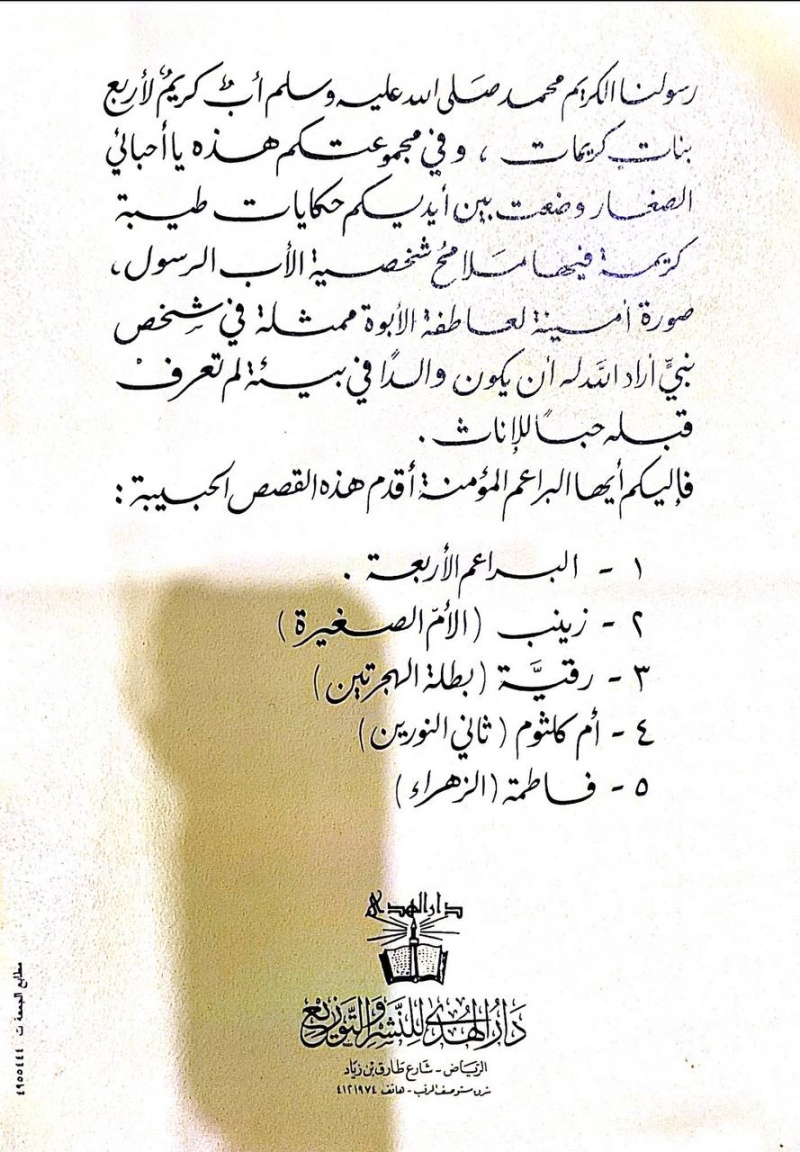 رسولنا الكريم محمد صلى الله عليه وسلم أبٌ كريمٌ لأربع
بنات كريمات ، وفي مجموعتكم هذه يا أحبائي
الصغار وضعت بين أيديكم حكايات طيبة
كريمة فيها ملامح شخصية الأب الرسول ،
صورة أمينة لعاطفة الأبوة ممثلة في شخص
نبيٍّ أراد الله له أن يكون والدًا في بيئة لم تعرف
قبله حبًا للإناث .
فإليكم أيها البراعم المؤمنة أقدم هذه القصص الحبيبة :
١ - البراعم الأربعة .
٢ - زينب (الأم الصغيرة)
٣ - رقيَّة (بطلة الهجرتين)
٤ - أم كلثوم (ثاني النورين)
٥ - فاطمة (الزهراء)
دار الهدى
دَارُ الهُدى لِلنَّشر وَالتَّوزيع
الرياض - شارع طارق بن زياد
هاتف ٤١٢١٩٧٤
مطابع الجمعة ت ٤٩٥٥٤٤٤